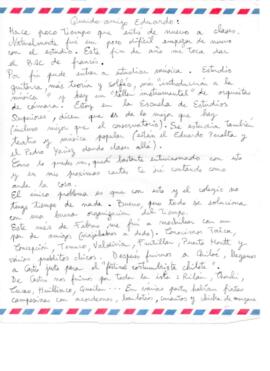 Querido amigo Eduardo:
Hace poco tiempo que entré de nuevo a clases.
Naturalmente fué un poco difícil empezar de nuevo
con el estudio. Este fin de año me toca dar
el BAC de francés.
Por fin pude entrar a estudiar música. Estudio
guitarra, más teoría y solfeo, más introducción a la
música y hay un "taller instrumental" de orquestas
de cámara. Estoy en la Escuela de Estudios
Superiores, dicen que es de lo mejor que hay
(incluso mejor que el conservatorio). Se estudia también
teatro y música popular (están el Eduardo Peralta y
el Pedro Yáñez dando clases allá).
Como lo puedes ver, quedé bastante entusiasmado con esto
y en mis próximas cartas te iré contando como
anda la cosa.
El único problema es que con esto y el colegio no
tengo tiempo de nada. Bueno, pero todo se soluciona
con una buena organización del tiempo.
Este mes de Febrero me fui a mochilear con un
par de amigos (viajábamos a dedo). Conocimos Talca,
Concepción, Temuco, Valdivia, Frutillar, Puerto Montt y
varios pueblitos chicos. Después fuimos a Chiloé, llegamos
a Castro justo para el "festival costumbrista chilote".
De Castro nos fuimos por toda la isla: Rilán, Chonchi,
Cucao, Huillinco, Queilen... En varias partes habían fiestas
campesinas con acordeones, bandoleón, curantos y chicha de manzana